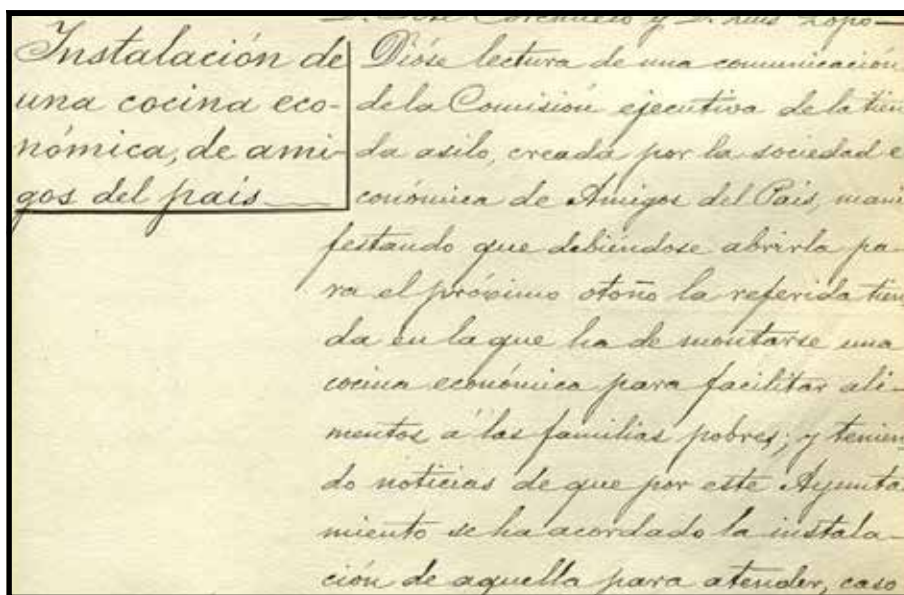 Instalación de
una cocina eco-
nómica, de ami-
gos del pais
D. José y D. Luis
Dióse lectura de una comunicación
de la Comisión ejecutiva de la tien
da asilo, creada por la sociedad e
conómica de Amigos del Pais, mani
festando que debiéndose abrirla pa-
ra el próximo otoño la referida tien
da en la que ha de montarse una
cocina económica para facilitar ali-
mentos á las familias pobres; y tenien
do noticias de que por este Ayunta
miento se ha acordado la instala-
ción de aquella para atender, caso